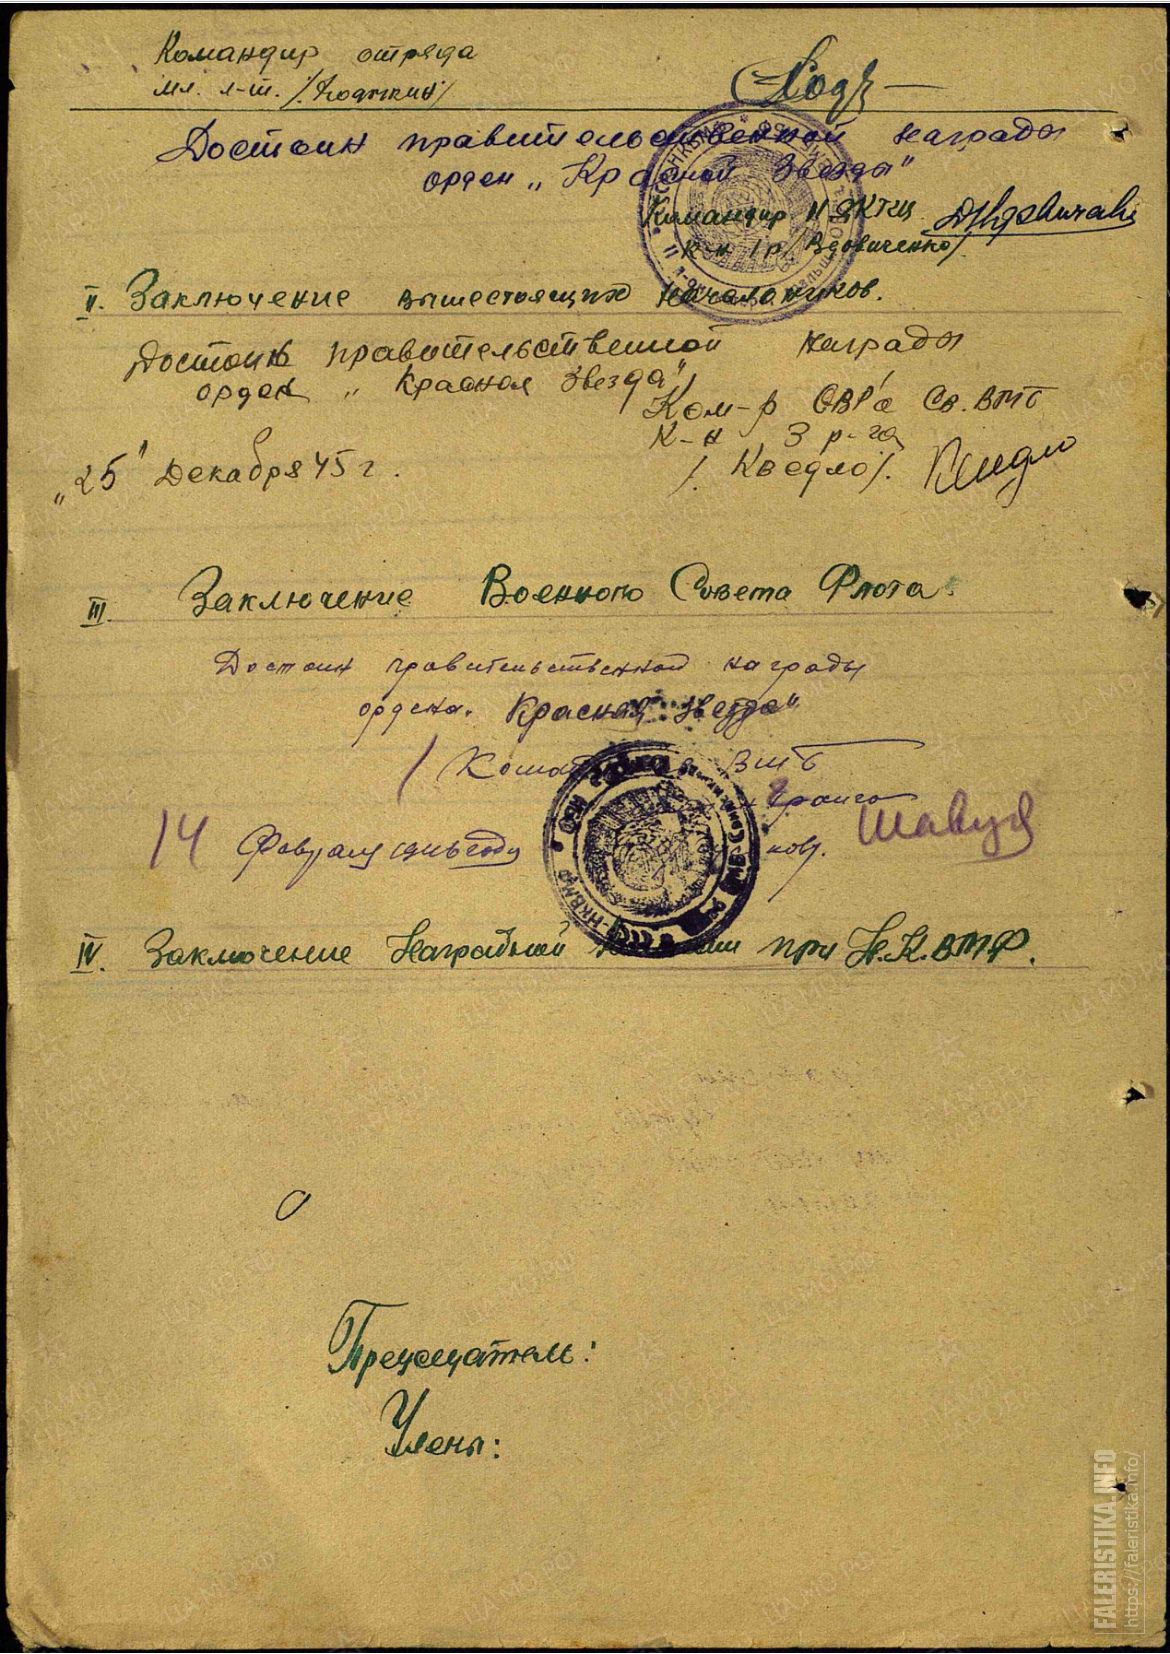 Командир отряда
мл. л-т. /Ходыкин/
Достоин правительственной награды
орден „Красной Звезды"
Командир II ДКТЩ
к-н /р/ Вдовиченко/
II. Заключение вышестоящих начальников.
Достоин правительственной награды
орден „Красная Звезда"
Ком-р ОВР'а Св. ВМБ
К-н 3 р-га
/. Кведло/. Кведло
„25" Декабря 45 г.
III. Заключение Военного Совета Флота.
Достоин правительственной награды
ордена. Красная Звезда"
ВМБ
ранга
14 февраля 1946 году
IV. Заключение Наградной при Н.К.ВМФ.
Председатель:
Члены:
FALERISTIKA.INFO
https://faleristika.info/